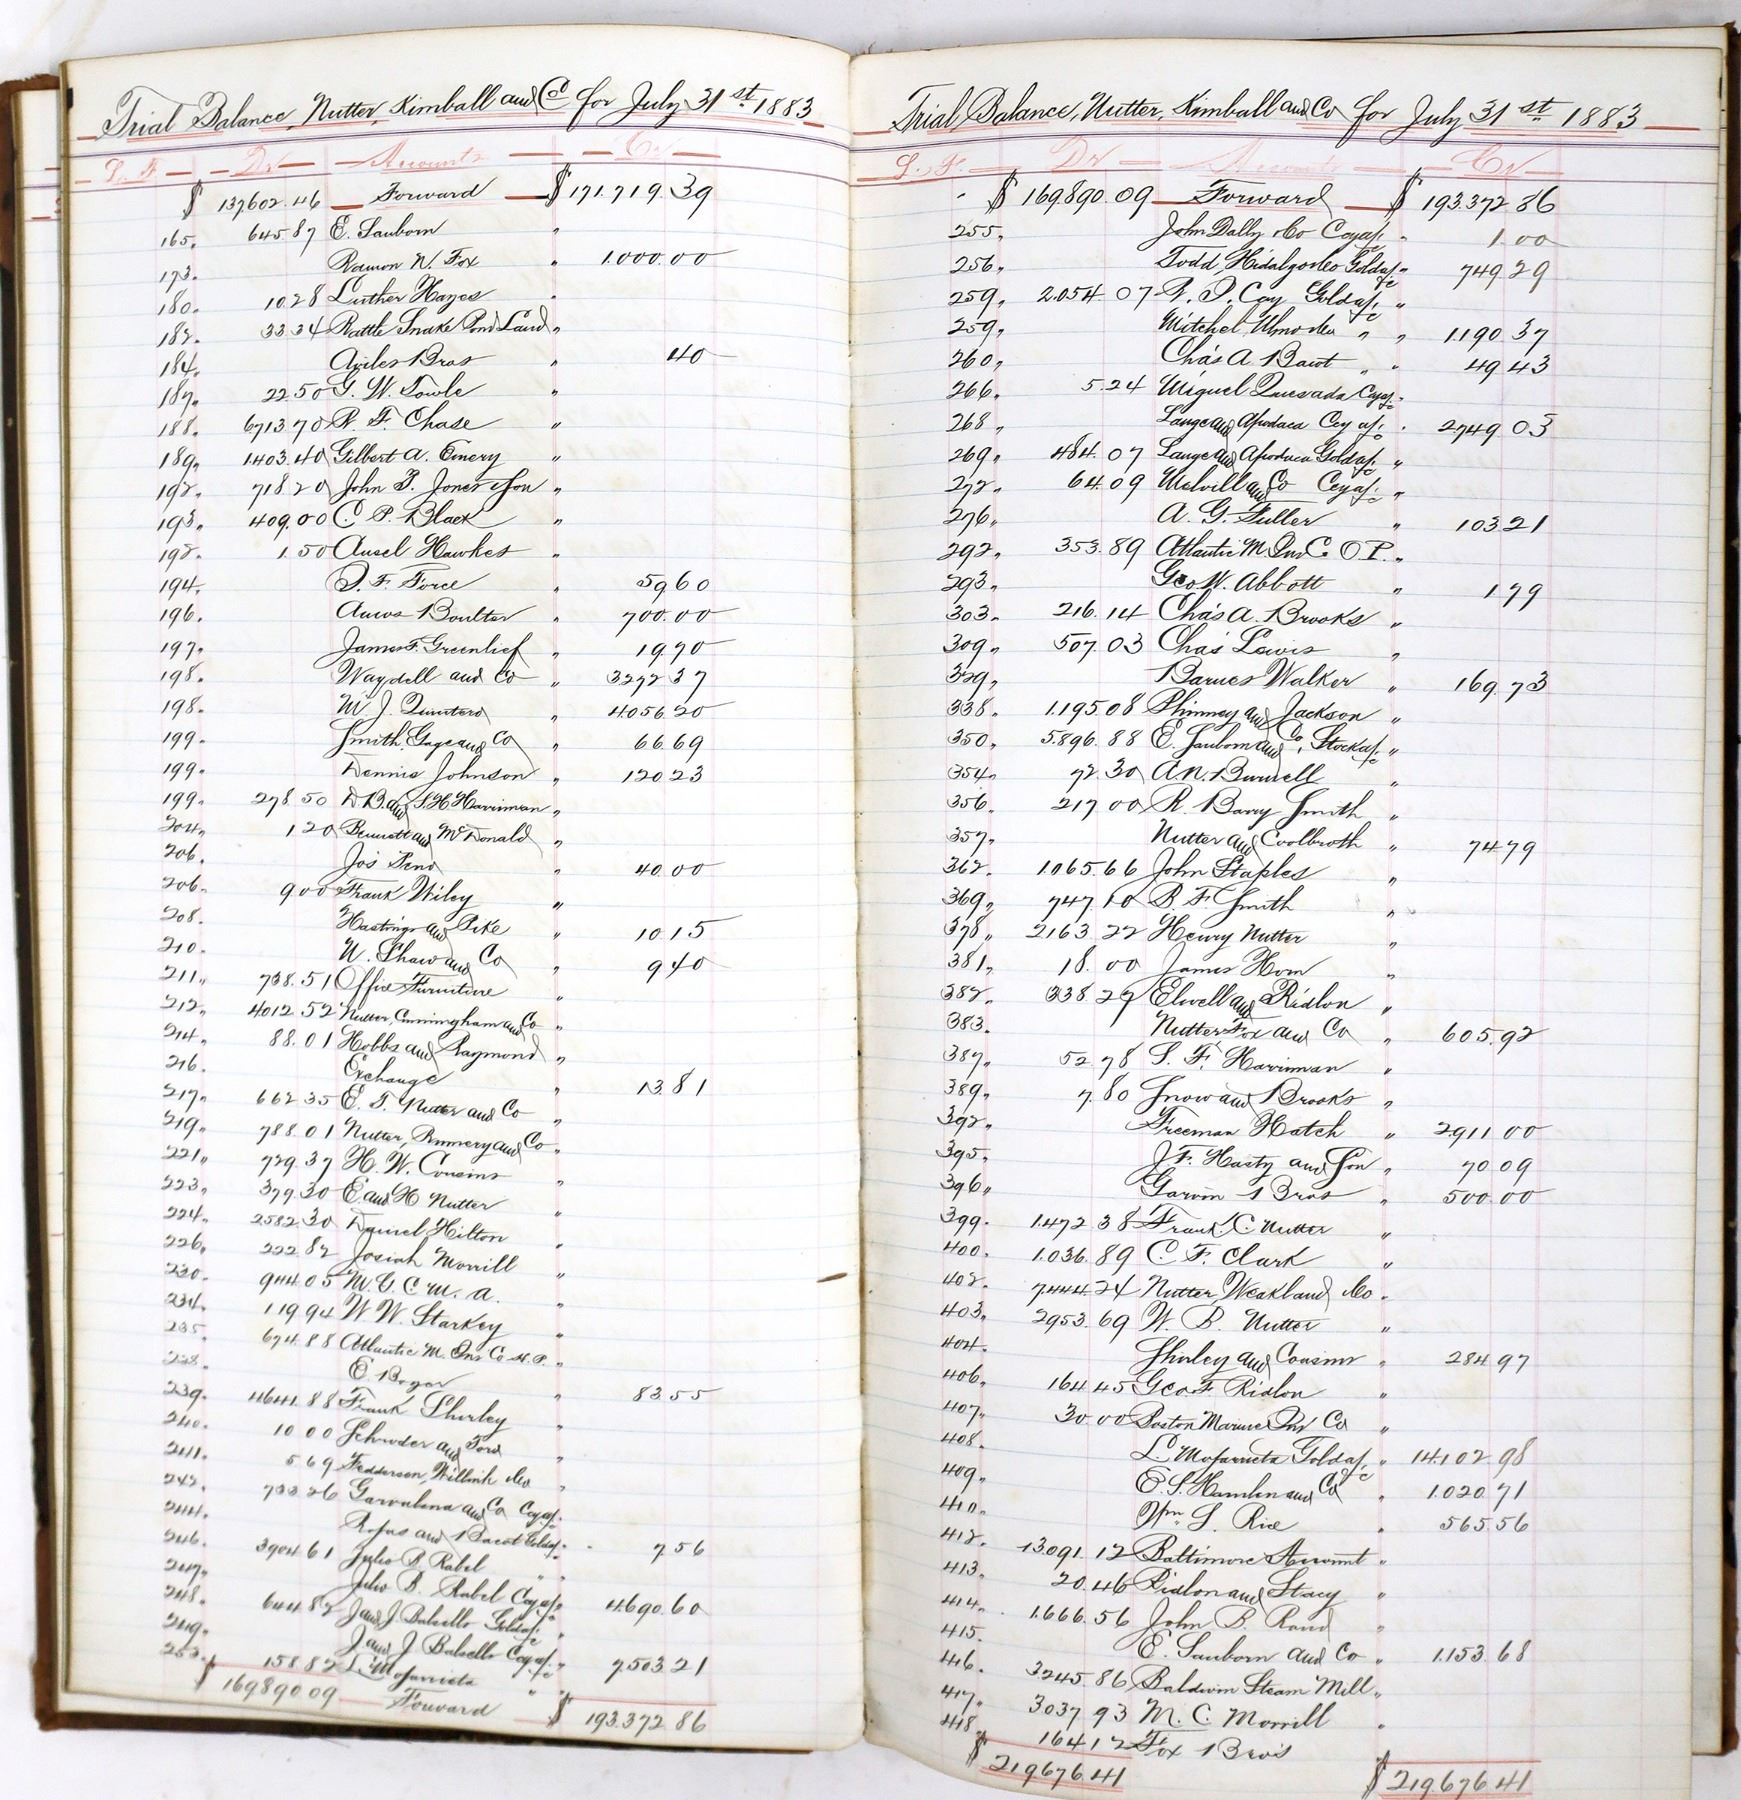 Trial Balance, Nutter, Kimball and Co for July 31st 1883
L. F. Dr Accounts Cr
$ 137602.46 Forward $171.719.39
165. 645.87 E. Sanborn "
173. Ramon N. Fox " 1.000.00
180. 10.28 Luther Hayes "
182. 33.34 Rattle Snake Pond Land "
184. Aviles Bros " 40
187. 22.50 G. W. Towle "
188. 6713.70 R. F. Chase "
189. 1.403.40 Gilbert A. Emery "
192. 718.20 John B. Jones & Son "
193. 409.00 C. P. Black "
192. 1.50 Ansel Hawkes "
194. D. F. Force " 59.60
196. Amos Boulter " 700.00
197. James F. Greenlief " 19.70
198. Waydell and Co " 3272.37
198. M. J. Quintero " 4056.20
199. Smith, Gage and Co " 66.69
199. Dennis Johnson " 120.23
199. 278.50 D B. and S. H Harriman "
204. 1.20 Bennett and McDonald "
206. Jos Pena " 40.00
206. 9.00 Frank Wiley "
208. Hastings and Pike " 10.15
210. N. Shaw and Co " 9.40
211. 738.51 Office Furniture "
212. 4012.52 Nutter, Cunningham and Co "
214. 88.01 Hobbs and Raymond "
216. Exchange " 13.81
217. 662.35 E. T. Nutter and Co "
219. 788.01 Nutter, Rumery and Co "
221. 729.37 H. W. Cousins "
223. 379.30 E and H Nutter "
224. 2582.30 Daniel Hilton "
226. 222.82 Josiah Morrill "
230. 944.05 M. G. C. M. A. "
234. 119.94 W W. Starkey "
235. 674.88 Atlantic M. Ins Co N. P. "
238. E. Boyer " 83.55
239. 4641.88 Frank Shurley "
240. 10.00 Schroder and Ford "
241. 5.69 Fedderson, Willink & Co "
242. 733.26 Garvalena and Co Cey a/c "
244. Rofus and Bacot Gold a/c " 7.56
246. 3904.61 Julio B Rabel " "
247. Julio B. Rabel Cey a/c " 4.690.60
248. 644.82 J and J Balsells Gold a/c "
249. J and J Balsells Cey a/c " 7503.21
252. 158.82 L. Mojarrieta " "
$ 169890.09 Forward $ 193.372.86
Trial Balance, Nutter, Kimball and Co for July 31st 1883
L. F. Dr Accounts Cr
$ 169.890.09 Forward $ 193.372.86
255. John Dally & Co Cey a/c " 1.00
256. Todd, Hidalgo & Co Gold a/c " 749.29
259. 2.054.07 R. P. Coy Gold a/c "
259. Mitchel Ulmo & Co " " 1.190.37
260. Chas A. Bawt " " 49.43
266. 5.24 Miguel Quesada Cey a/c "
268. Lange and Apodaca Cey a/c " 2749.03
269. 484.07 Lange and Apodaca Gold a/c "
272. 64.09 Melvill and Co Cey a/c "
276. A. G. Fuller " 103.21
292. 353.89 Atlantic M. Ins Co O. P. "
293. Geo W. Abbott " 1.79
303. 216.14 Chas A. Brooks "
309. 507.03 Chas Lewis "
329. Barnes Walker " 169.73
338. 1.195.08 Phinney and Jackson "
350. 5.896.88 E. Sanborn and Co, Stock a/c "
354. 72.30 A. N. Burwell "
356. 217.00 R. Barry Smith "
357. Nutter and Coolbroth " 74.79
362. 1.065.66 John Staples "
369. 747.10 R. F. Smith "
378. 2163.22 Henry Nutter "
381. 18.00 James Horn "
382. 338.27 Elwell and Ridlon "
383. Nutter Fox and Co " 605.92
387. 52.78 S. F. Harriman "
389. 7.80 Snow and Brooks "
392. Freeman Hatch " 2911.00
395. J. F. Hasty and Son " 70.09
396. Garvin Bros " 500.00
399. 1.472.38 Frank C. Nutter "
400. 1.036.89 C. F. Clark "
402. 7444.24 Nutter Weakland & Co "
403. 2953.69 W. B. Nutter "
404. Shurley and Cousins " 284.97
406. 164.45 Geo F. Ridlon "
407. 30.00 Boston Marine Ins Co "
408. L. Mojarrieta Gold a/c " 14.102.98
409. E. S. Hamlen and Co " 1.020.71
410. Wm S. Rice " 565.56
412. 13.091.12 Baltimore Account "
413. 20.46 Ridlon and Stacy "
414. 1.666.56 John B. Rand "
415. E. Sanborn and Co " 1.153.68
416. 3245.86 Baldwin Steam Mill "
417. 3037.93 M. C. Morrill "
418. 164.12 Fox Bros
$ 219676.41 $ 219.676.41